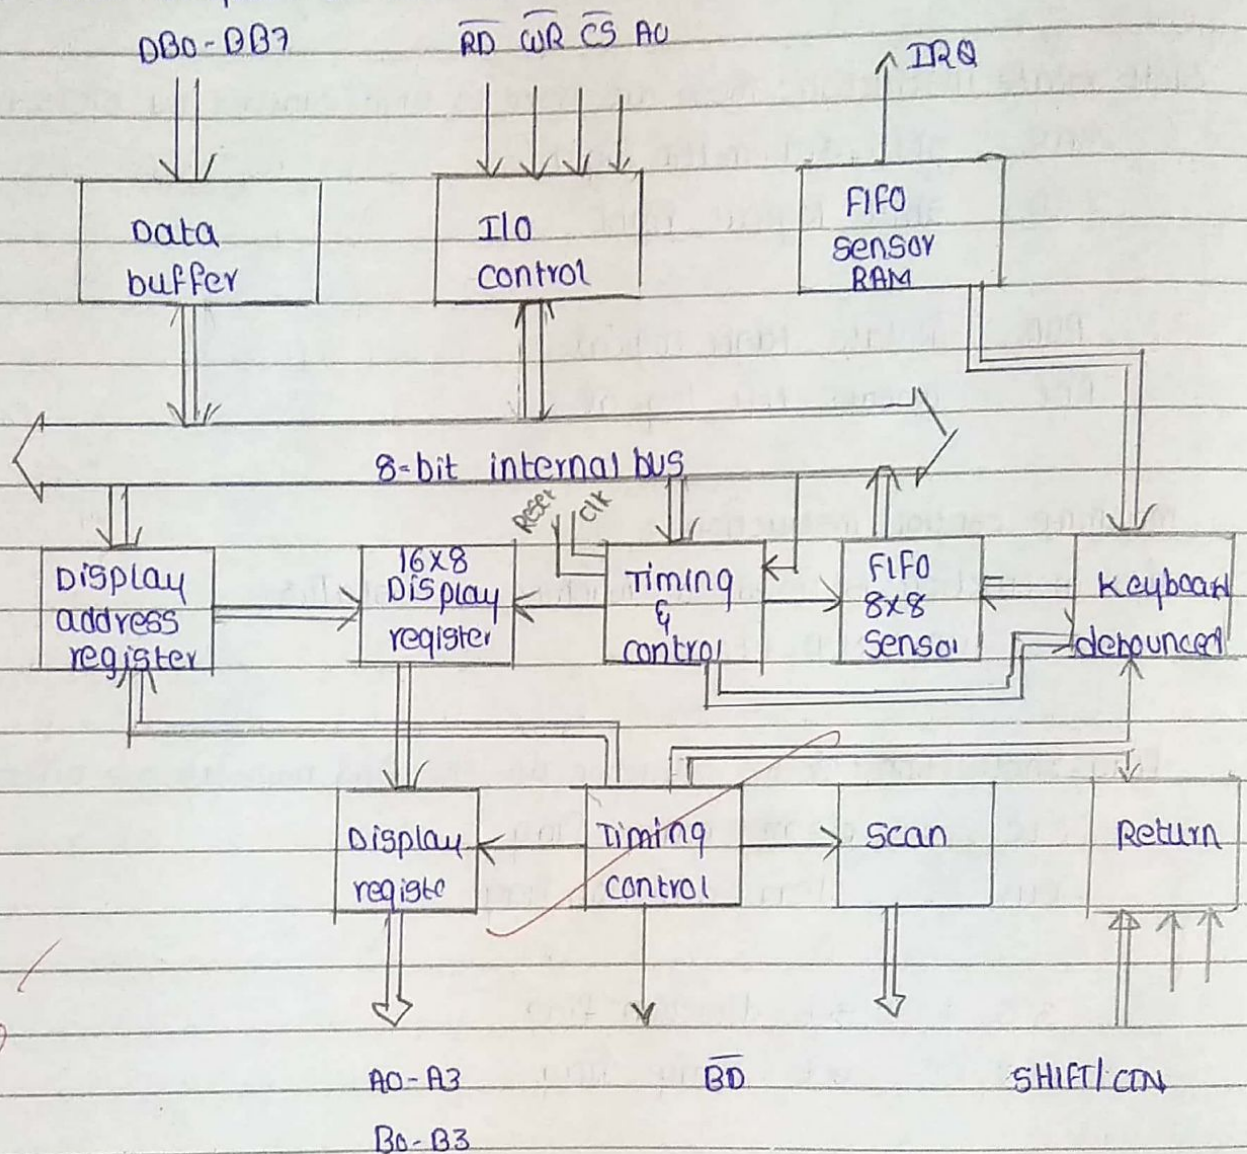 DB0-DB7
RD WR CS A0
IRQ
Data
buffer
I/O
control
FIFO
sensor
RAM
8-bit internal bus
Reset
Clk
Display
address
register
16x8
Display
register
Timing
&
control
FIFO
8x8
Sensor
Keyboard
debounced
Display
registe
Timing
control
Scan
Return
A0-A3
B0-B3
BD
SHIFT/